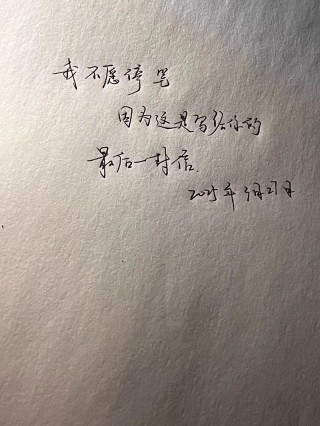 我不愿停笔
因为这是写给你的
最后一封信
2025年3月27日